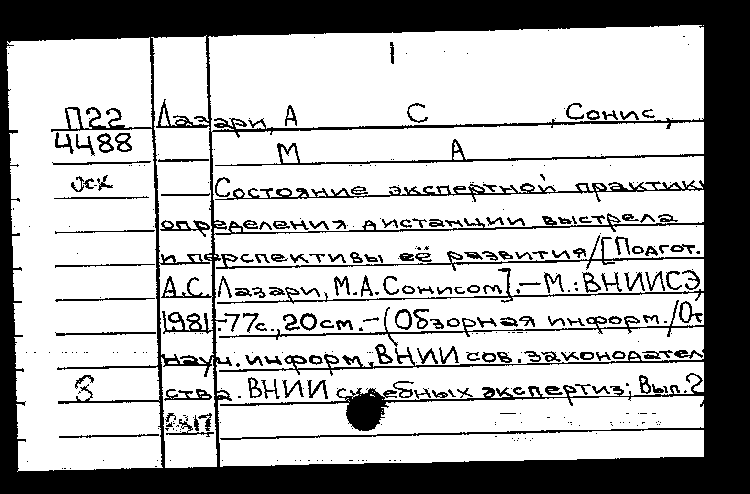 1
П22 Лазари, А С , Сонис,
4488 М А
оск Состояние экспертной практики
определения дистанции выстрела
и перспективы её развития/[Подгот.
А.С. Лазари, М.А. Сонисом].—М.: ВНИИСЭ,
1981.-77с.,20см.—(Обзорная информ./От
науч. информ. ВНИИ сов. законодатель
8 ства. ВНИИ судебных экспертиз; Вып.2,